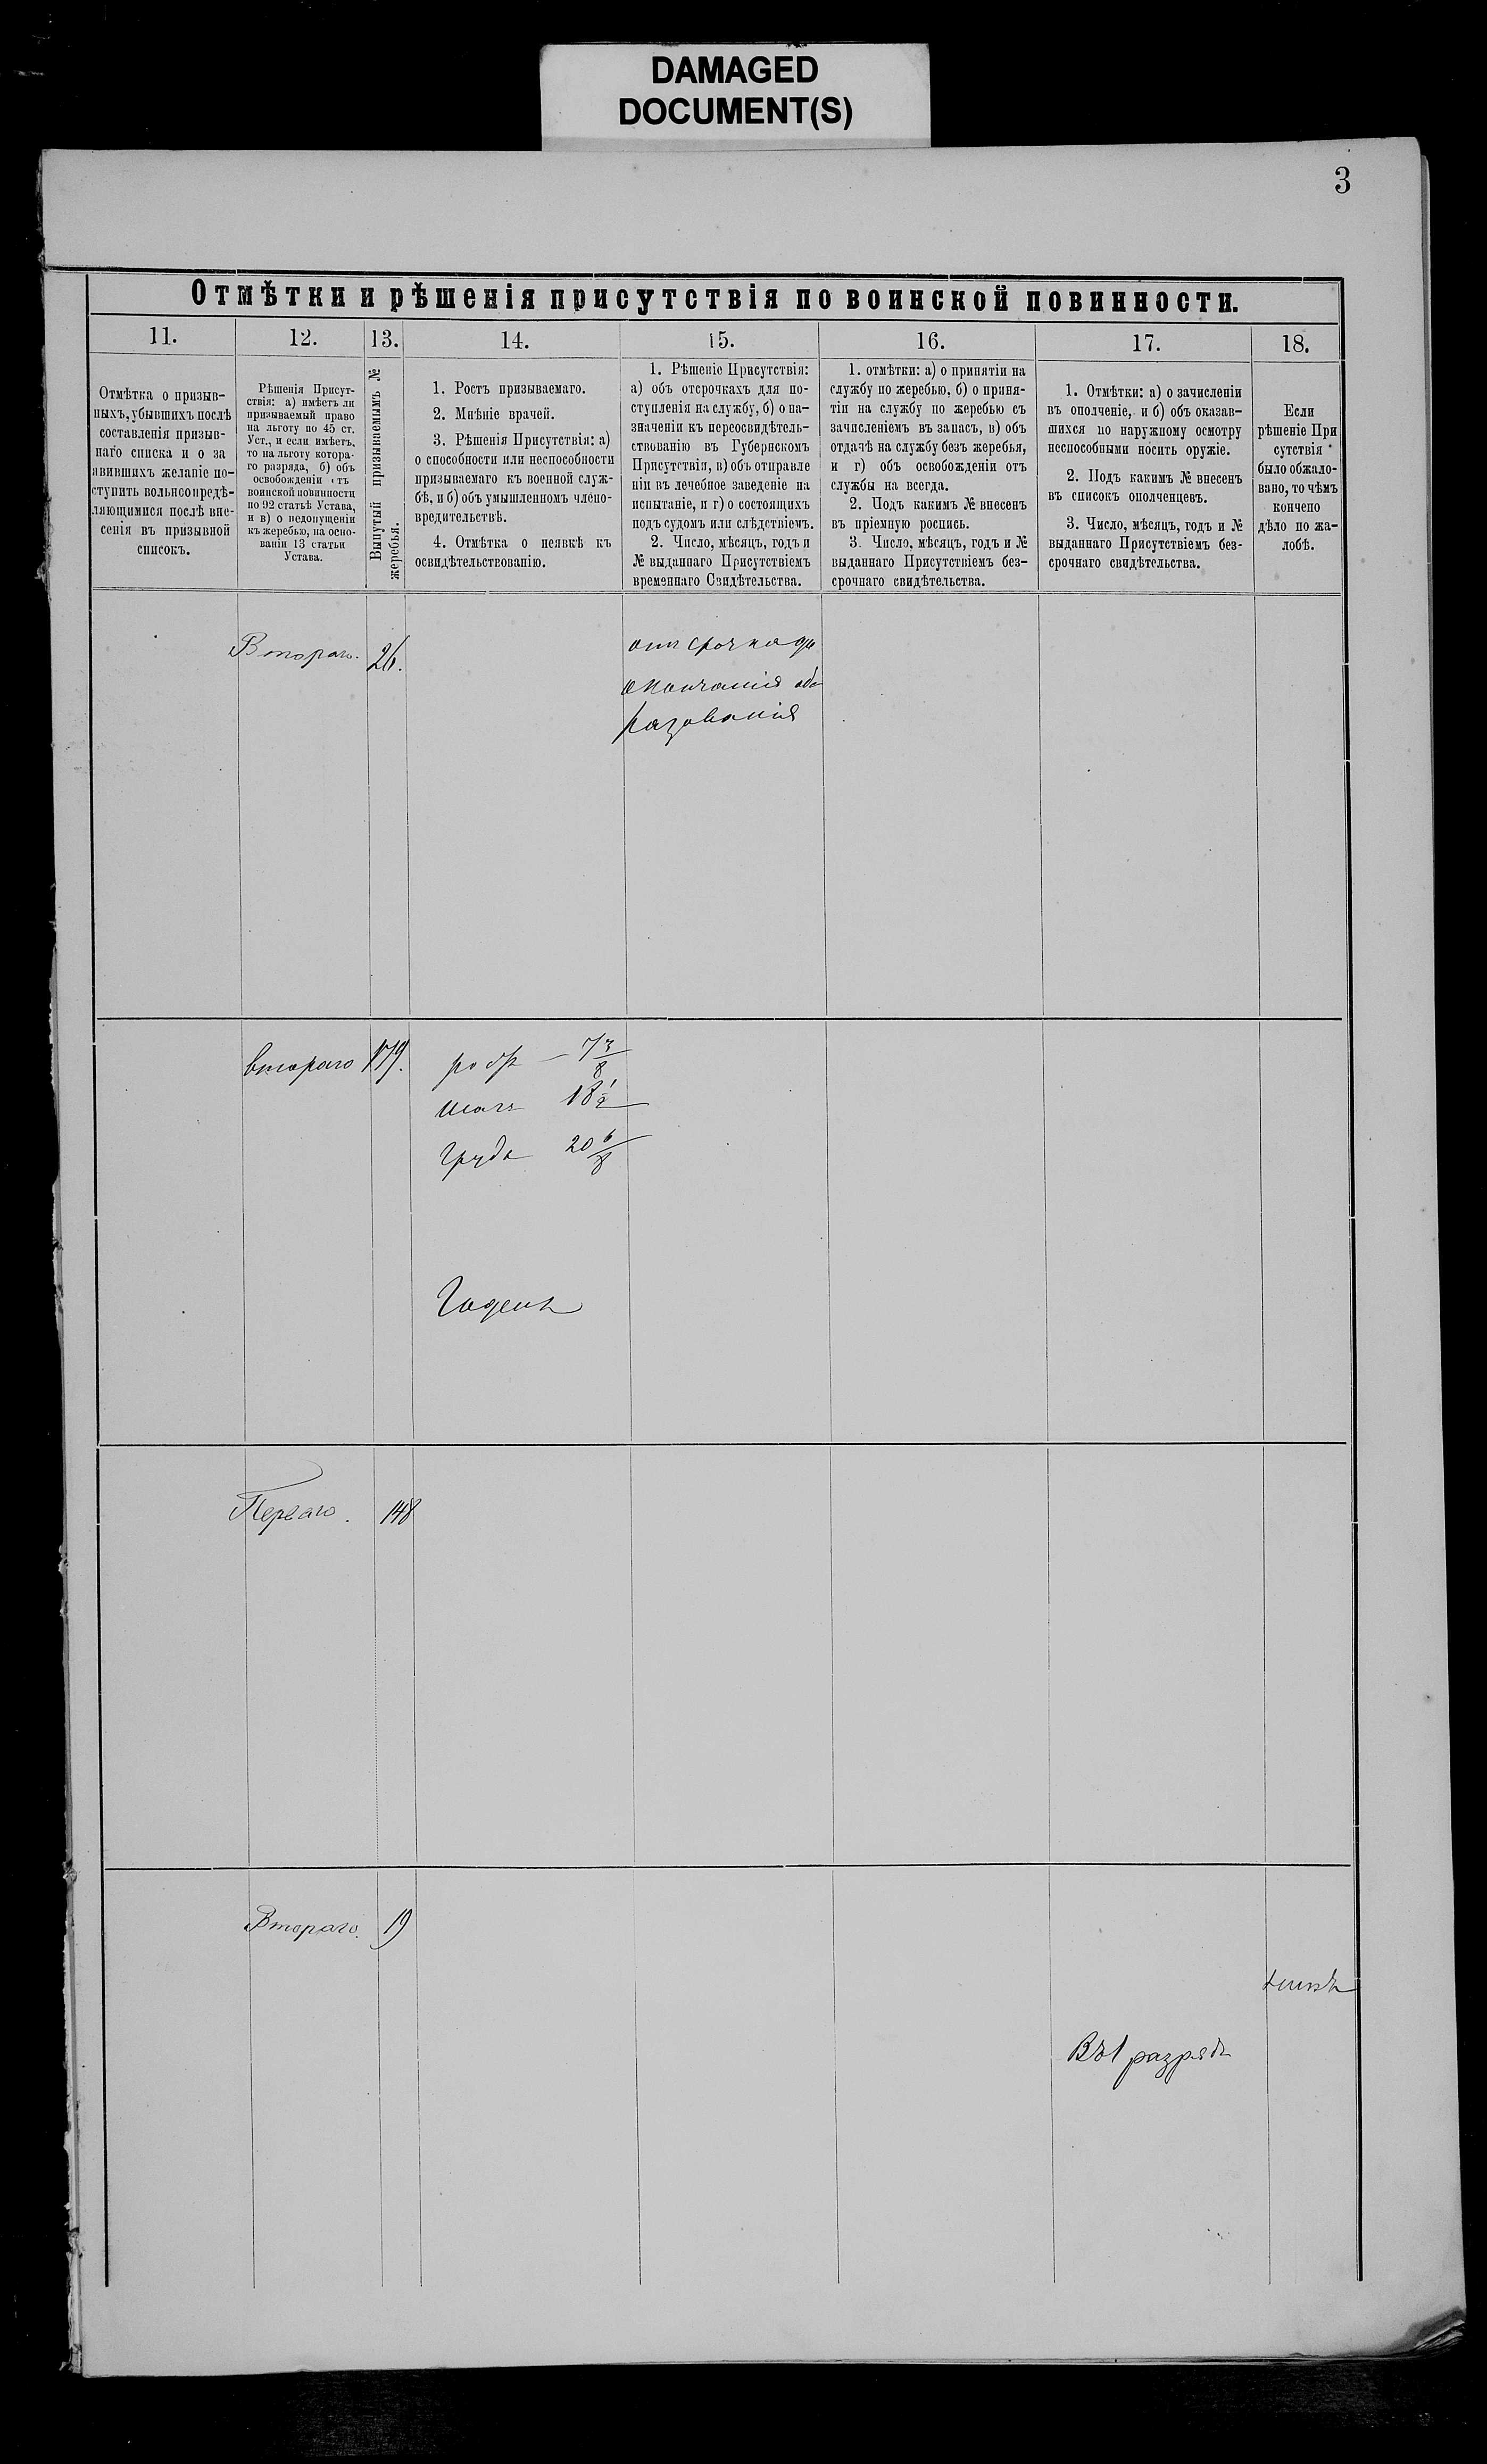 DAMAGED
DOCUMENT(S)
3
Отмѣтки и рѣшенія присутствія по воинской повинности.
11.
12.
13.
14.
15.
16.
17.
18.
Отмѣтка о призыв-
ныхъ, убывшихъ послѣ
составленія призыв-
наго списка и о за
явившихъ желаніе по-
ступить вольноопредѣ-
ляющимися послѣ вне-
сенія въ призывной
списокъ.
Рѣшенія Присут-
ствія: а) имѣетъ ли
призываемый право
на льготу по 45 ст.
Уст., и если имѣетъ,
то на льготу котора-
го разряда, б) объ
освобожденіи отъ
воинской повинности
по 92 статьѣ Устава,
и в) о недопущеніи
къ жеребью, на осно-
ваніи 13 статьи
Устава.
Вынутый призываемымъ №
жеребья.
1. Ростъ призываемаго.
2. Мнѣніе врачей.
3. Рѣшенія Присутствія: а)
о способности или неспособности
призываемаго къ военной служ-
бѣ, и б) объ умышленномъ члено-
вредительствѣ.
4. Отмѣтка о неявкѣ къ
освидѣтельствованію.
1. Рѣшеніе Присутствія:
а) объ отсрочкахъ для по-
ступленія на службу, б) о на-
значеніи къ переосвидѣтель-
ствованію въ Губернскомъ
Присутствіи, в) объ отправле
ніи въ лечебное заведеніе на
испытаніе, и г) о состоящихъ
подъ судомъ или слѣдствіемъ.
2. Число, мѣсяцъ, годъ и
№ выданнаго Присутствіемъ
временнаго Свидѣтельства.
1. отмѣтки: а) о принятіи на
службу по жеребью, б) о приня-
тіи на службу по жеребью съ
зачисленіемъ въ запасъ, в) объ
отдачѣ на службу безъ жеребья,
и г) объ освобожденіи отъ
службы на всегда.
2. Подъ какимъ № внесенъ
въ пріемную роспись.
3. Число, мѣсяцъ, годъ и №
выданнаго Присутствіемъ без-
срочнаго свидѣтельства.
1. Отмѣтки: а) о зачисленіи
въ ополченіе, и б) объ оказав-
шихся по наружному осмотру
неспособными носить оружіе.
2. Подъ какимъ № внесенъ
въ списокъ ополченцевъ.
3. Число, мѣсяцъ, годъ и №
выданнаго Присутствіемъ без-
срочнаго свидѣтельства.
Если
рѣшеніе При
сутствія
было обжало-
вано, то чѣмъ
кончено
дѣло по жа-
лобѣ.
Втораго. 26.
отсрочка до
окончанія об
разованія
втораго 179.
ростъ — 7 3/8
18 1/2
грудь 20 6/8
Годенъ
Перваго. 148
Втораго. 19
Въ 1 разрядъ